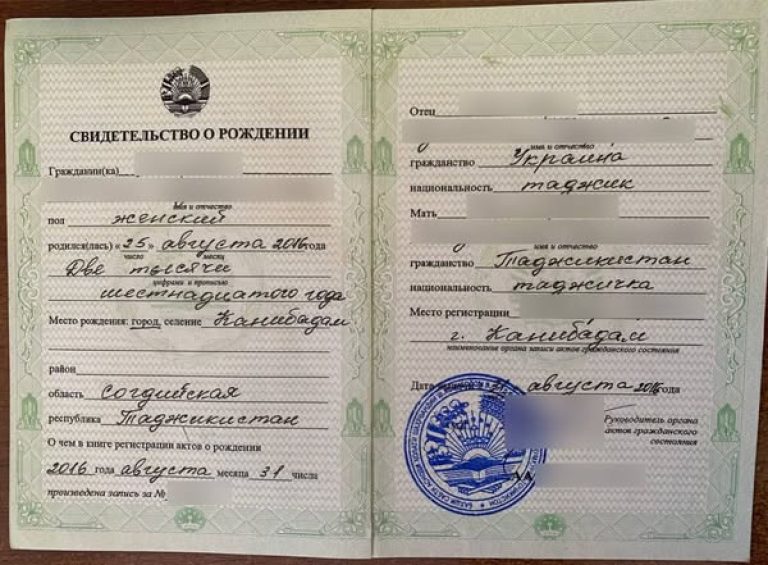 СВИДЕТЕЛЬСТВО О РОЖДЕНИИ
Гражданин(ка)
имя и отчество
пол женский
родился(лась) «25» августа 2016года
число месяц
Две тысячи
цифрами и прописью
шестнадцатого года
Место рождения: город, селение Канибадам
район
область Согдийская
республика Таджикистан
О чем в книге регистрации актов о рождении
2016 года августа месяца 31 числа
произведена запись за №
Отец
имя и отчество
гражданство Украина
национальность таджик
Мать
имя и отчество
гражданство Таджикистан
национальность таджичка
Место регистрации
г. Канибадам
наименование органа записи актов гражданского состояния
Дата августа 2016года
Руководитель органа
актов гражданского
состояния